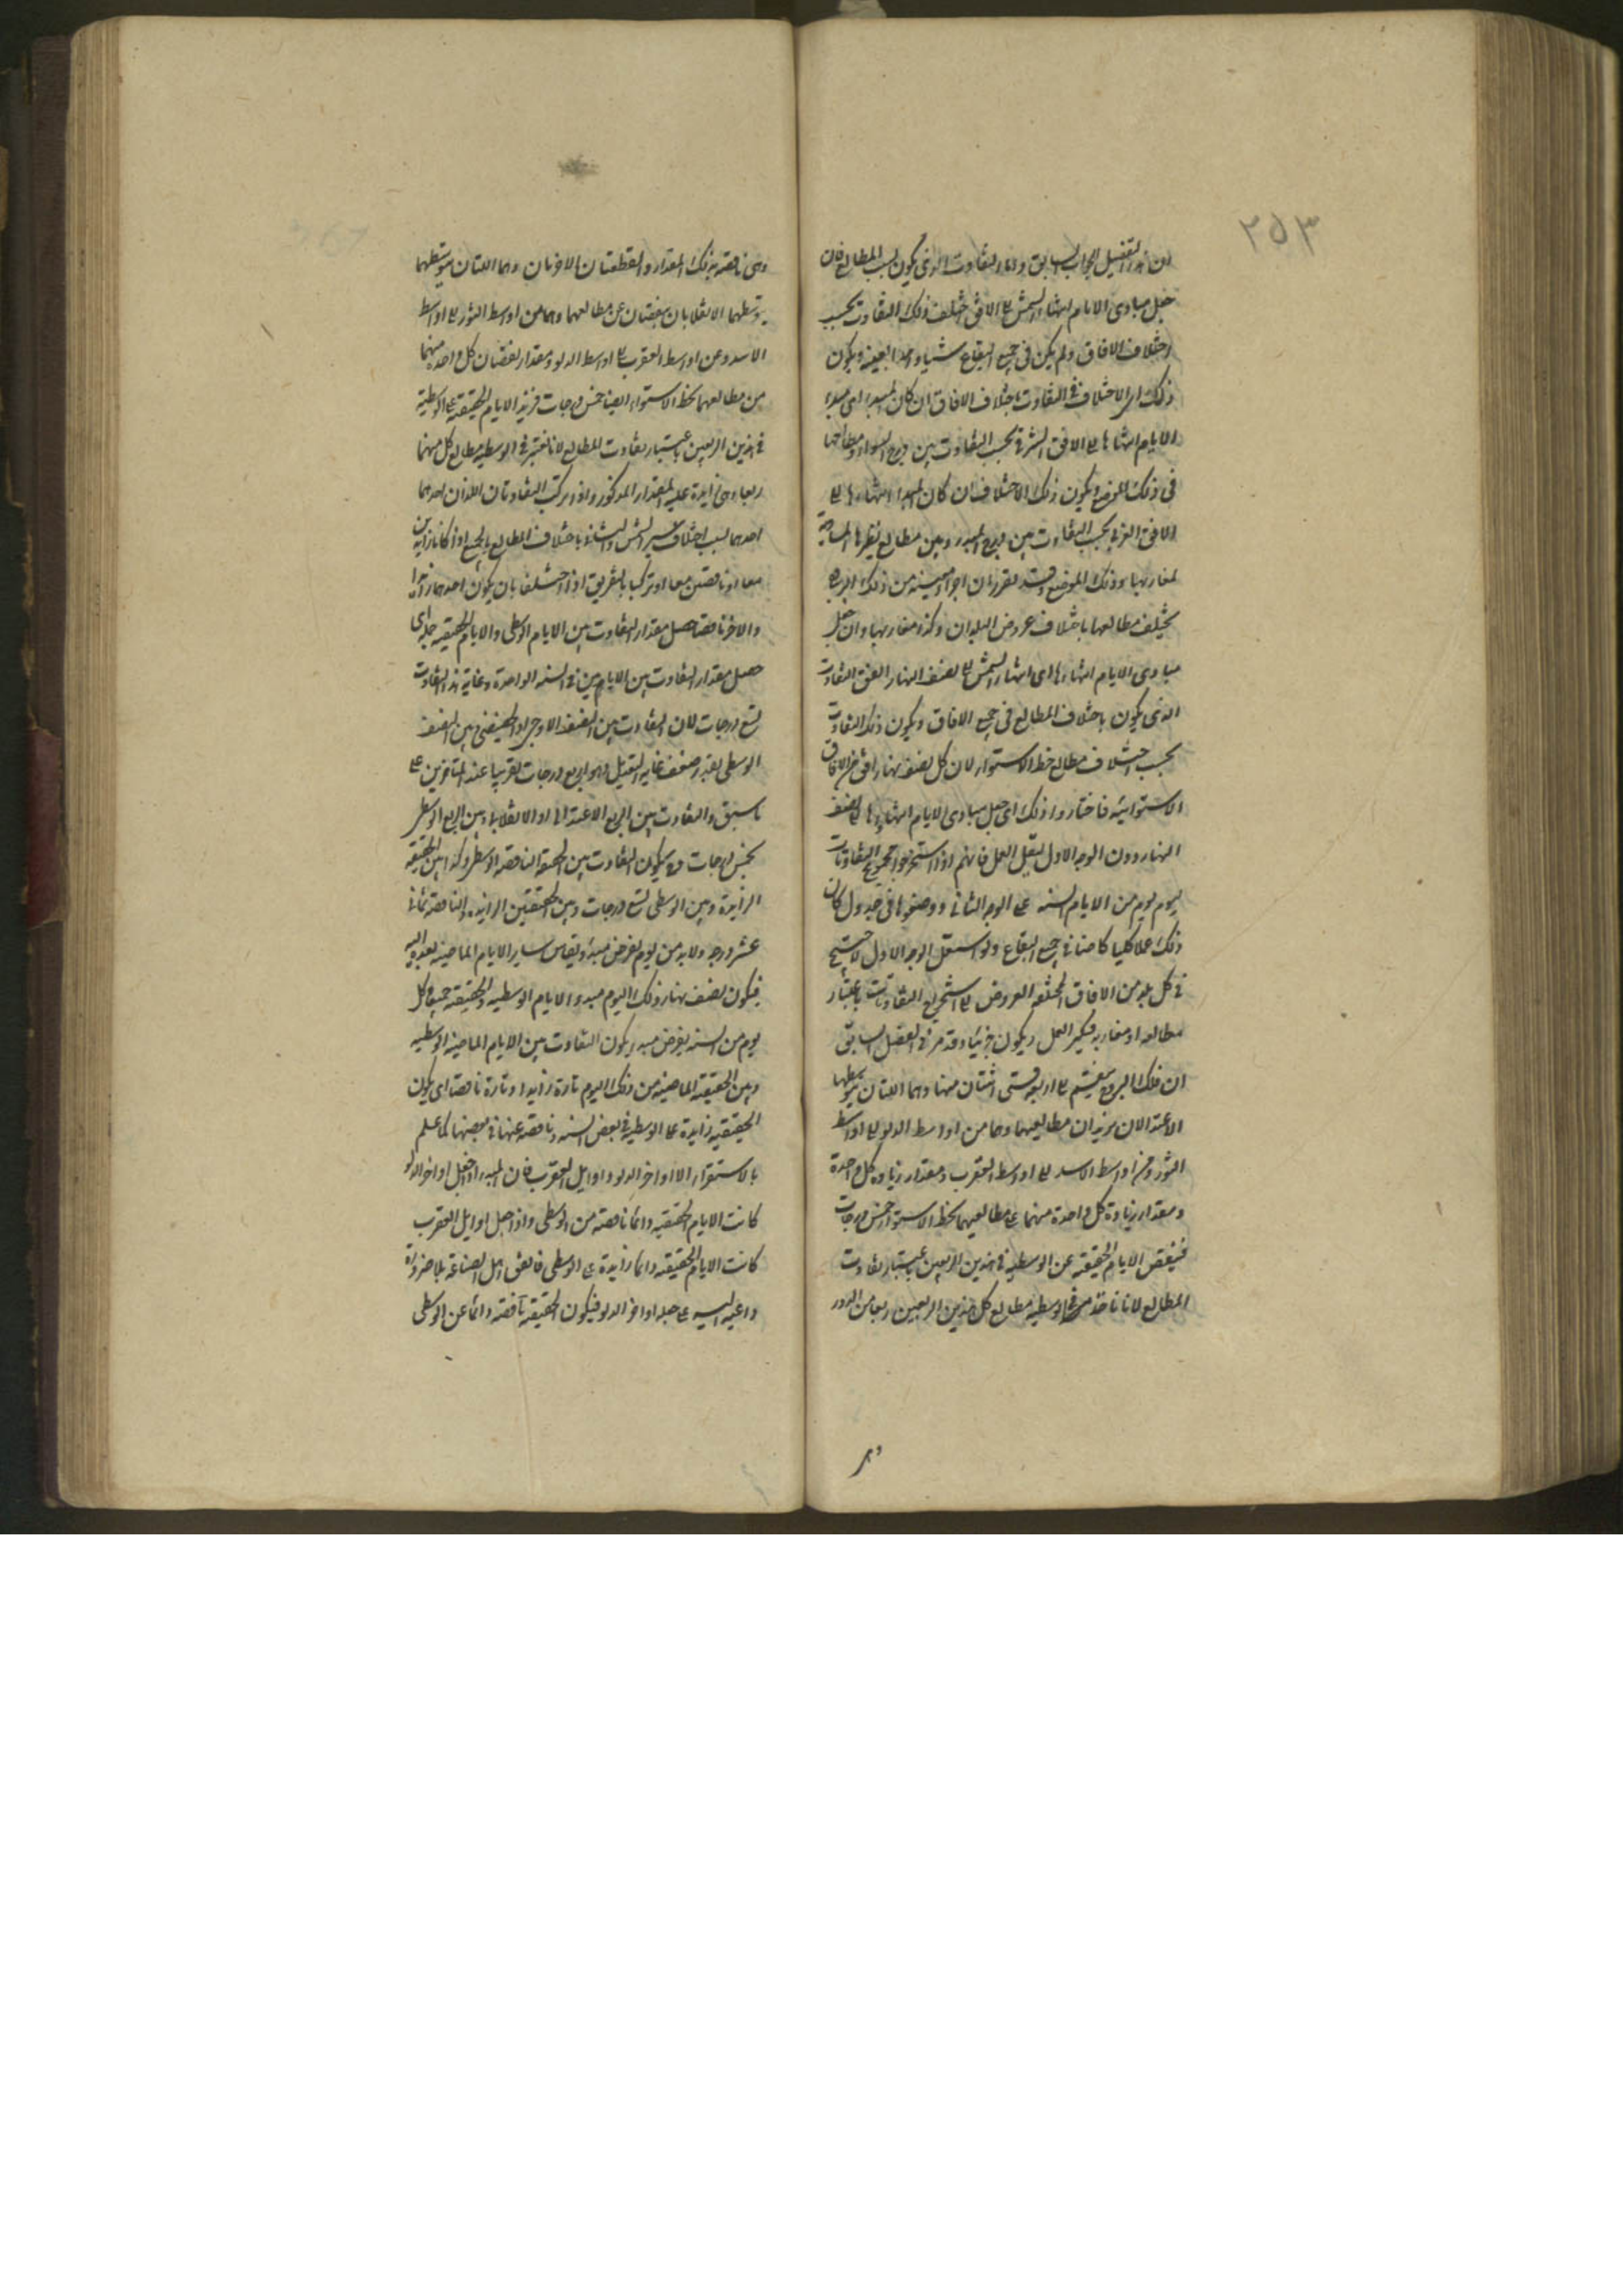 ٢٥٣
التفصيل الجواب السابق واما التفاوت الذى يكون بسبب المطالع فان
جعل مبادى الايام انتهاء الشمس الى الافق اختلف ذلك التفاوت بحسب
اختلاف الافاق ولم يكن فى جميع البقاع شيئا واحدا بعينه ويكون
ذلك الاختلاف فى التفاوت باختلاف الافاق ان كان المبدء اى مبدء
الايام انتهاءها الى الافق الشرقى بحسب التفاوت بين درج السواء ومطالعها
فى ذلك الموضع ويكون ذلك الاختلاف ان كان المبدء انتهاءها الى
الافق الغربى بحسب التفاوت بين درج المبدء وبين مطالع نظيرها المساوية
لمغاربها وذلك الموضع وقد تقرر ان اجزاء معينة من فلك البروج
يختلف مطالعها باختلاف عروض البلدان وكذا مغاربها وان جعل
مبادى الايام انتهاءها اى انتهاء الشمس الى نصف النهار اتفق التفاوت
الذى يكون باختلاف المطالع فى جميع الافاق ويكون ذلك التفاوت
بحسب اختلاف مطالع خط الاستواء لان كل نصف نهار افق من الافاق
الاستوائية فاختاروا ذلك اى جعل مبادى الايام انتهاءها الى نصف
النهار دون الوجه الاول لتقليل العمل فانهم اذا استخرجوا جميع التفاوتات
ليوم يوم من الايام السنة على الوجه الثانى ووضعوها فى جدول كان
ذلك عملا كليا كافيا فى جميع البقاع ولو استعمل الوجه الاول لاحتيج
فى كل بلد من الافاق المختلفة العروض الى استخراج التفاوتات باعتبار
مطالعه او مغاربه فيكثر العمل ويكون جزئيا وقد مر فى الفصل السابق
ان فلك البروج ينقسم الى اربعة قسى اثنتان منها وهما اللتان يتوسطهما
الاعتدالان يزيدان مطالعهما وهما من اواسط الدلو الى اواسط
الثور ومن اواسط الاسد الى اواسط العقرب ومقدار زيادة كل واحدة
ومقدار زيادة كل واحدة منهما على مطالعهما بخط الاستواء خمس درجات
فينقص الايام الحقيقية عن الوسطية فى هذين الربعين باعتبار تفاوت
المطالع لانا ناخذ من فى الوسطية مطالع كل هذين الربعين ربعا من الدور
وهى
وهى ناقصة بذلك المقدار والقطعتان الاخريان وهما اللتان يتوسطهما
يتوسطهما الانقلابان ينقصان عن مطالعهما وهما من اواسط الثور الى اواسط
الاسد ومن اواسط العقرب الى اواسط الدلو ومقدار نقصان كل واحدة منهما
من مطالعهما بخط الاستواء ايضا خمس درجات فيزيد الايام الحقيقية على الوسطية
فى هذين الربعين باعتبار تفاوت المطالع لانا نعتبر فى الوسطية مطالع كل منهما
ربعا وهى زايدة عليه المقدار المذكور واذا تركب التفاوتان اللذان احدهما
احدهما بسبب اختلاف سير الشمس والثانى باختلاف المطالع بالجمع اذا كانا زايدين
معا او ناقصين معا او تركبا بالتفريق اذا اختلفا بان يكون احدهما زايدا
والاخر ناقصا حصل مقدار التفاوت بين الايام الوسطى والايام الحقيقية جملة اى
حصل مقدار التفاوت بين الايام بين فى السنة الواحدة وغاية هذا التفاوت
تسع درجات لان التفاوت بين النصف الاوجى او الحضيضى وبين النصف
الوسطى بقدر ضعف غاية التعديل وهو اربع درجات تقريبا عند المتاخرين على
ما سبق والتفاوت بين الربع الاعتدالى او الانقلابى وبين الربع الوسطى
بخمس درجات فيكون التفاوت بين الحقيقة الناقصة والوسطى وكذا بين الحقيقة
الزايدة وبين الوسطى تسع درجات وبين الحقيقتين الزايدة والناقصة ثمانى
عشر درجة ولابد من يوم يفرض مبدء ويقاس ساير الايام الماضية بعده اليه
فيكون نصف نهار ذلك اليوم مبدء الايام الوسطية والحقيقية جميعا وكل
يوم من السنة يفرض مبدء يكون التفاوت بين الايام الماضية الوسطية
وبين الحقيقية الماضية من ذلك اليوم تارة زايدا وتارة ناقصا اى يكون
الحقيقية زايدة على الوسطية فى بعض السنة وناقصة عنها فى بعضها كما علم
بالاستقراء الا اواخر الدلو واوايل العقرب فان المبدء اذا جعل اواخر الدلو
كانت الايام الحقيقية دائما ناقصة من الوسطى واذا جعل اوايل العقرب
كانت الايام الحقيقية دائما زايدة على الوسطى فاتفق اهل الصناعة بلا ضرورة
داعية اليه على جعله اواخر الدلو فيكون الحقيقية ناقصة دائما عن الوسطى